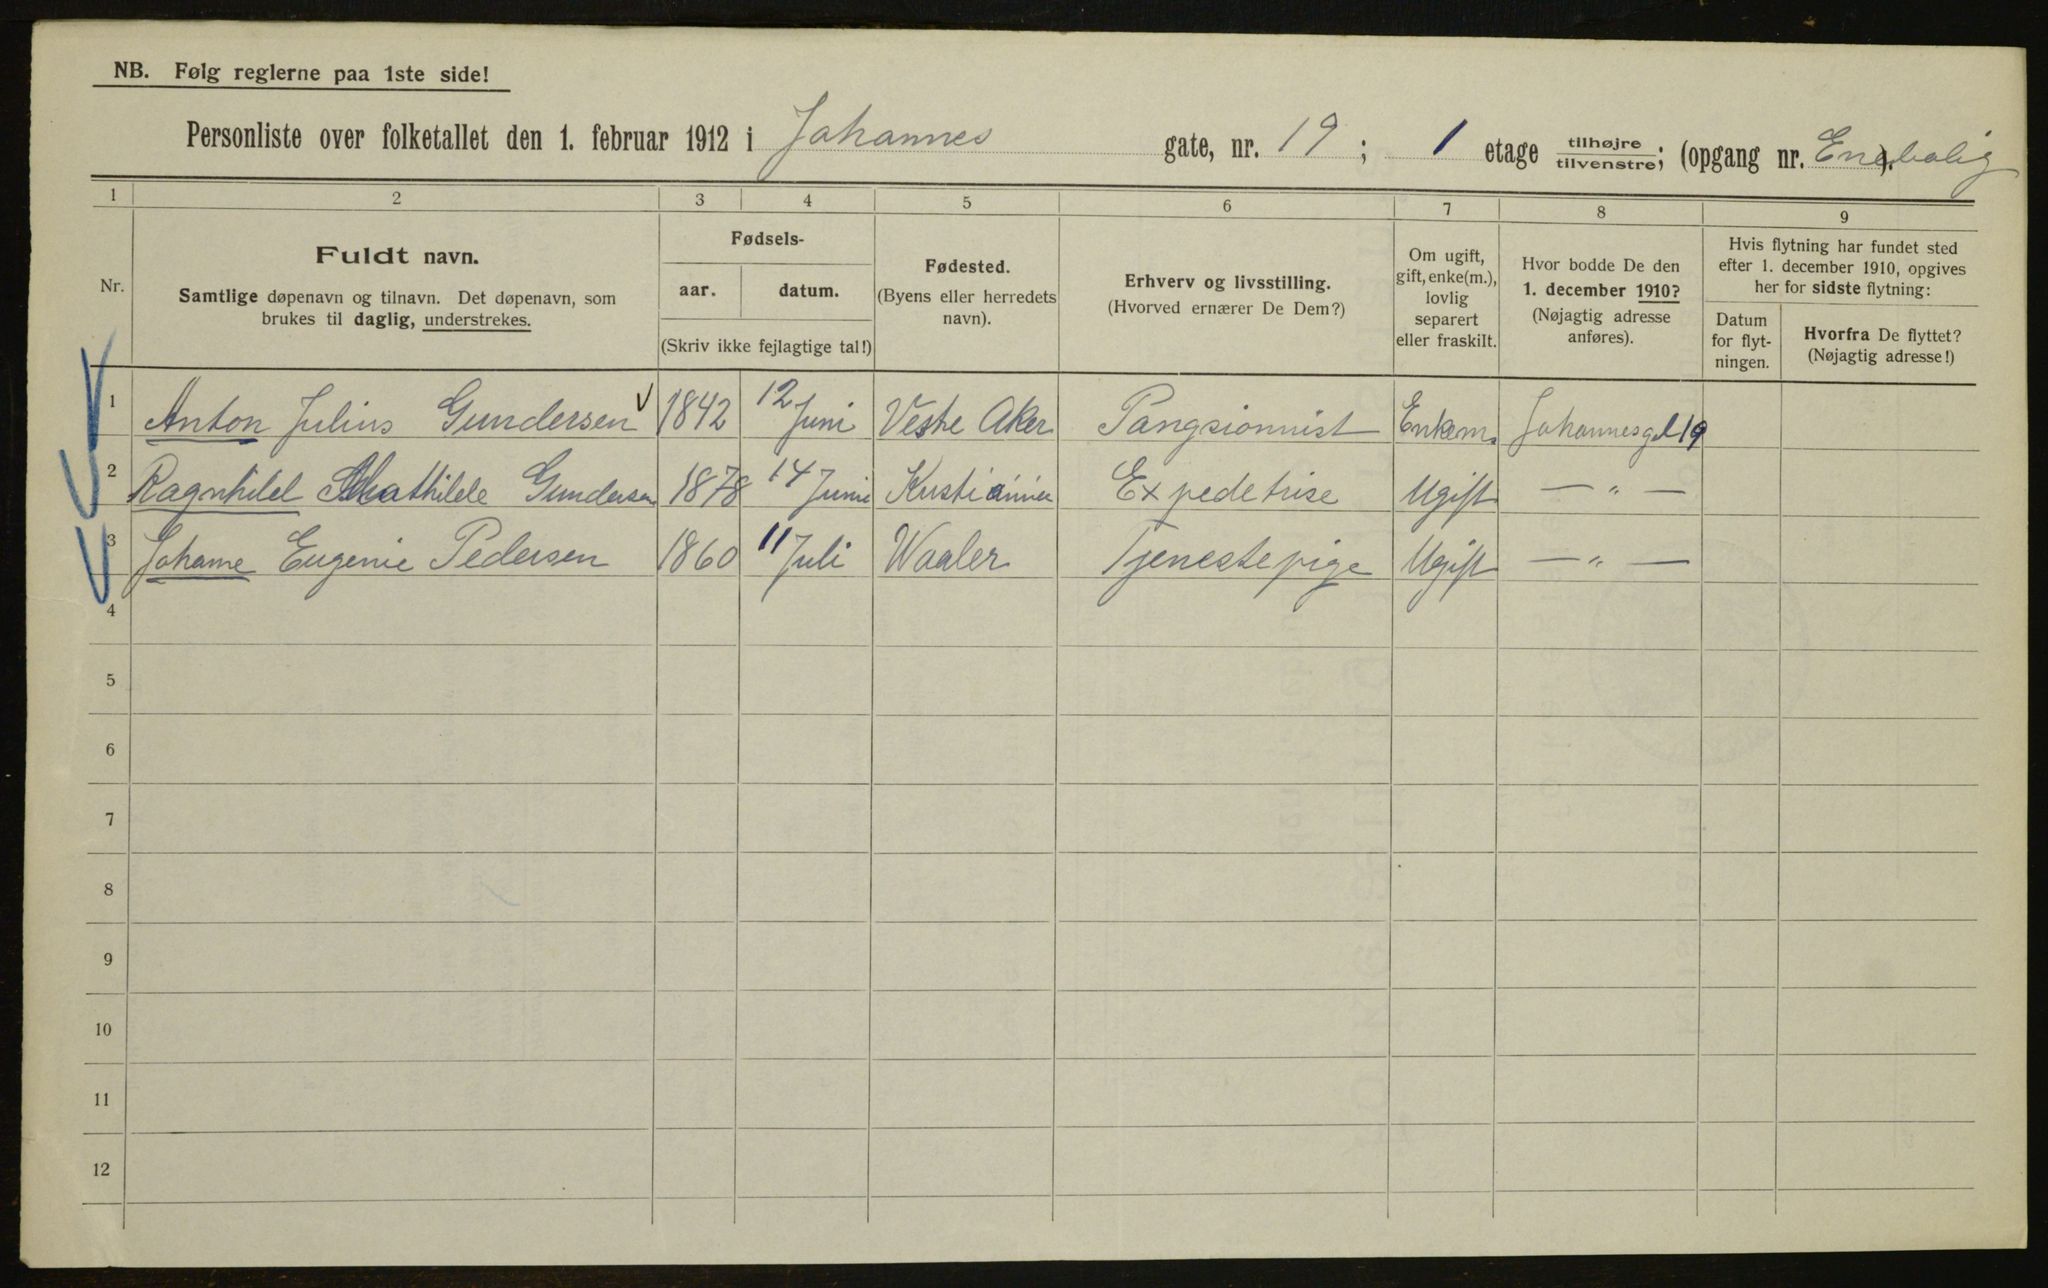 NB. Følg reglerne paa 1ste side!
Personliste over folketallet den 1. februar 1912 i Johannes gate, nr. 19; 1 etage tilhøjre/tilvenstre; (opgang nr. Enebolig).
1 2 3 4 5 6 7 8 9
Nr.
Fuldt navn.
Samtlige døpenavn og tilnavn. Det døpenavn, som
brukes til daglig, understrekes.
Fødsels-
aar. datum.
(Skriv ikke fejlagtige tal!)
Fødested.
(Byens eller herredets
navn).
Erhverv og livsstilling.
(Hvorved ernærer De Dem?)
Om ugift,
gift, enke(m.),
lovlig
separert
eller fraskilt.
Hvor bodde De den
1. december 1910?
(Nøjagtig adresse
anføres).
Hvis flytning har fundet sted
efter 1. december 1910, opgives
her for sidste flytning:
Datum
for flyt-
ningen.
Hvorfra De flyttet?
(Nøjagtig adresse!)
1 Anton Julius Gundersen 1842 12 Juni Vestre Aker Pangsionnist Enkem. Johannesgd 19
2 Ragnhild Mathilde Gundersen 1878 14 Juni Kristiania Expedetrise Ugift — " —
3 Johanne Eugenie Pedersen 1860 11 Juli Waaler Tjenestepige Ugift — " —
4
5
6
7
8
9
10
11
12